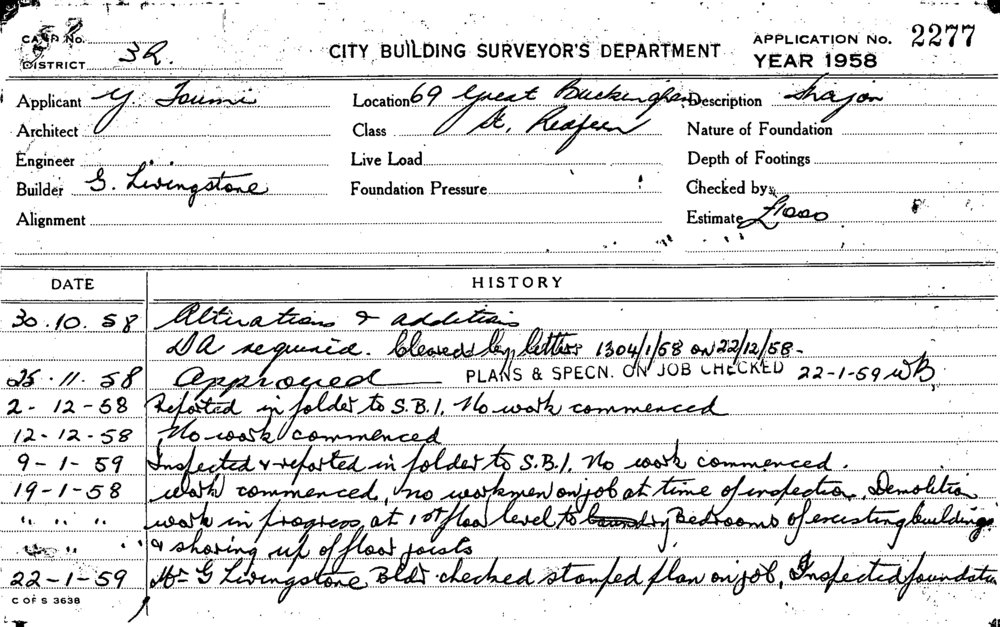 CARD No.
DISTRICT 3R.
CITY BUILDING SURVEYOR'S DEPARTMENT
APPLICATION No. 2277
YEAR 1958
Applicant Y. Toumi Location 69 Great Buckingham Description
Architect Class St, Redfern Nature of Foundation
Engineer Live Load Depth of Footings
Builder G. Livingstone Foundation Pressure Checked by
Alignment Estimate £1000
DATE HISTORY
30.10.58 Alterations & additions
DA required. Cleared by letter 1304/1/58 on 22/12/58-
25.11.58 Approved PLANS & SPECN. ON JOB CHECKED 22-1-59 WB
2-12-58 Reported in folder to S.B.I. No work commenced
12-12-58 No work commenced
9-1-59 Inspected & reported in folder to S.B.I. No work commenced.
19-1-58 Work commenced, no workmen on job at time of inspection, Demolition
" " " work in progress at 1st floor level to Bedrooms of existing buildings
" " & shoring up of floor joists
22-1-59 Mr G Livingstone Bldr checked stamped plan on job, Inspected foundation
C OF S 3638